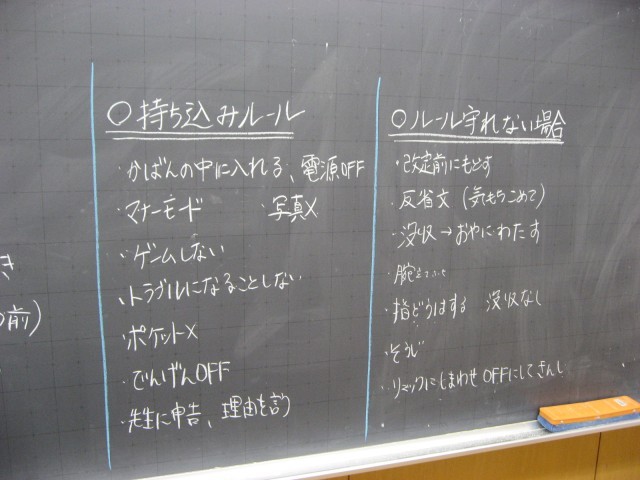 き
前)
○持ち込みルール
・かばんの中に入れる、電源OFF
・マナーモード ・写真×
・ゲームしない
・トラブルになることしない
・ポケット×
・でんげんOFF
・先生に申告、理由を言う
○ルール守れない場合
・改定前にもどす
・反省文(気もちこめて)
・没収→おやにわたす
・腕立て
・指どうはする 没収なし
・そうじ
・リュックにしまわせOFFにしてきんし